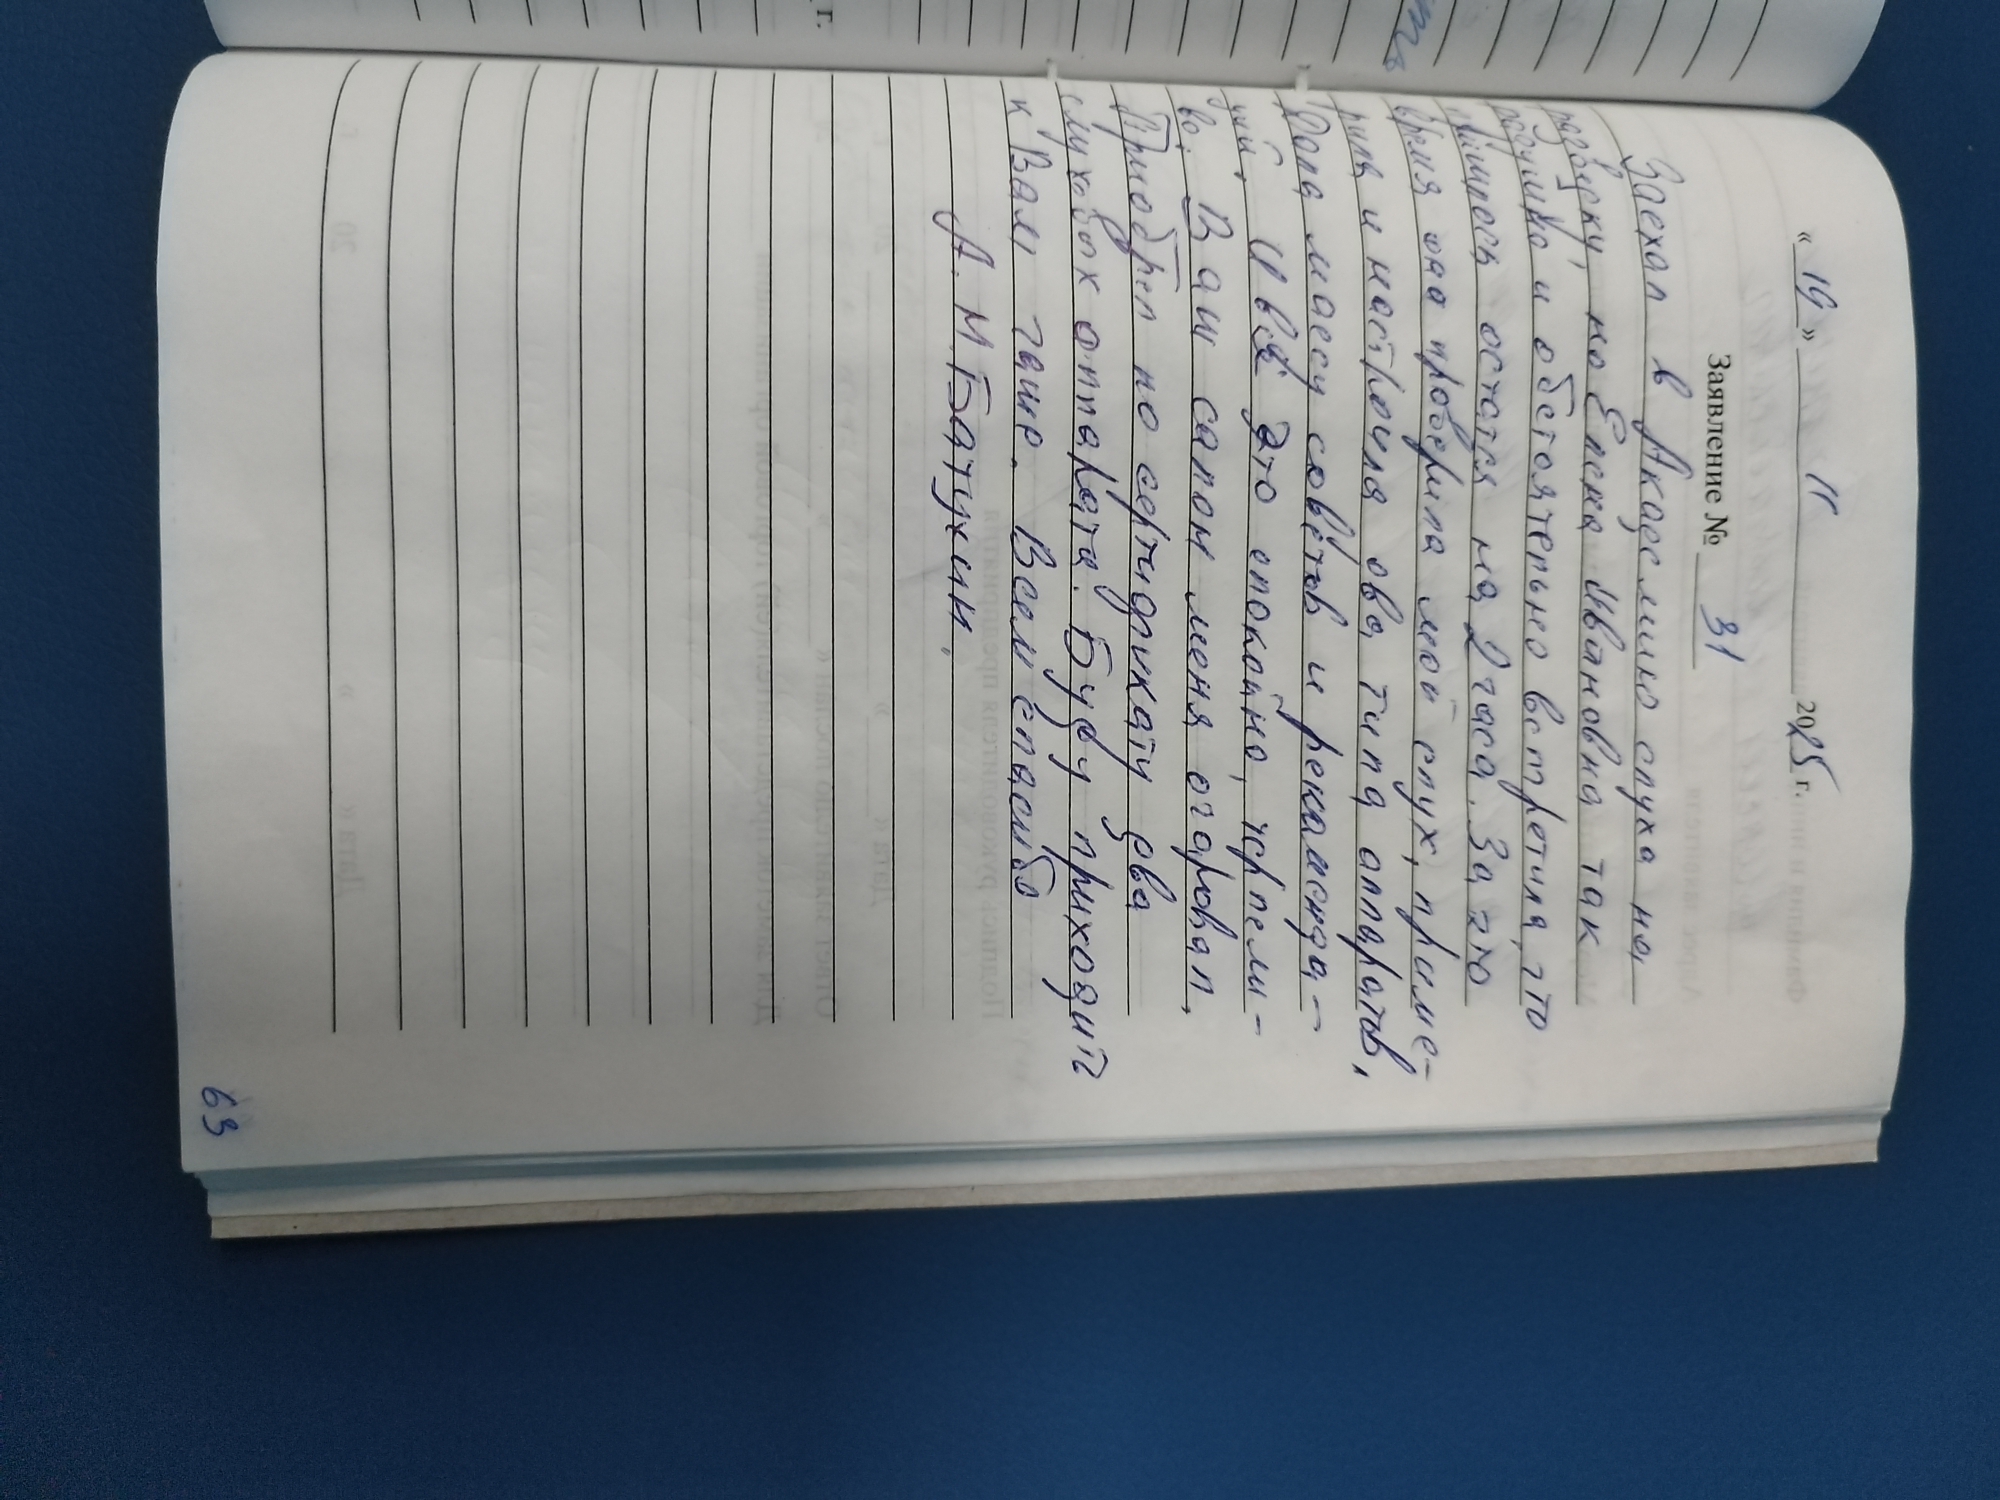 « 19 » 11 2025 г.
Заявление № 31
Заехал в Академию слуха на
разведку, но Елена Ивановна так
радушно и обстоятельно встретила, что
пришлось остатся на 2 часа. За это
время она проверила мой слух, приме-
рила и настроила два типа аппаратов,
Дала массу советов и рекаменда-
ций. И всё это спокойно, черпели-
во. Ваш салон меня очаровал.
Приобрел по сертификату два
слуховых аппарата. Буду приходить
к Вам чаще. Всем спасибо
А. М. Батухин.
63